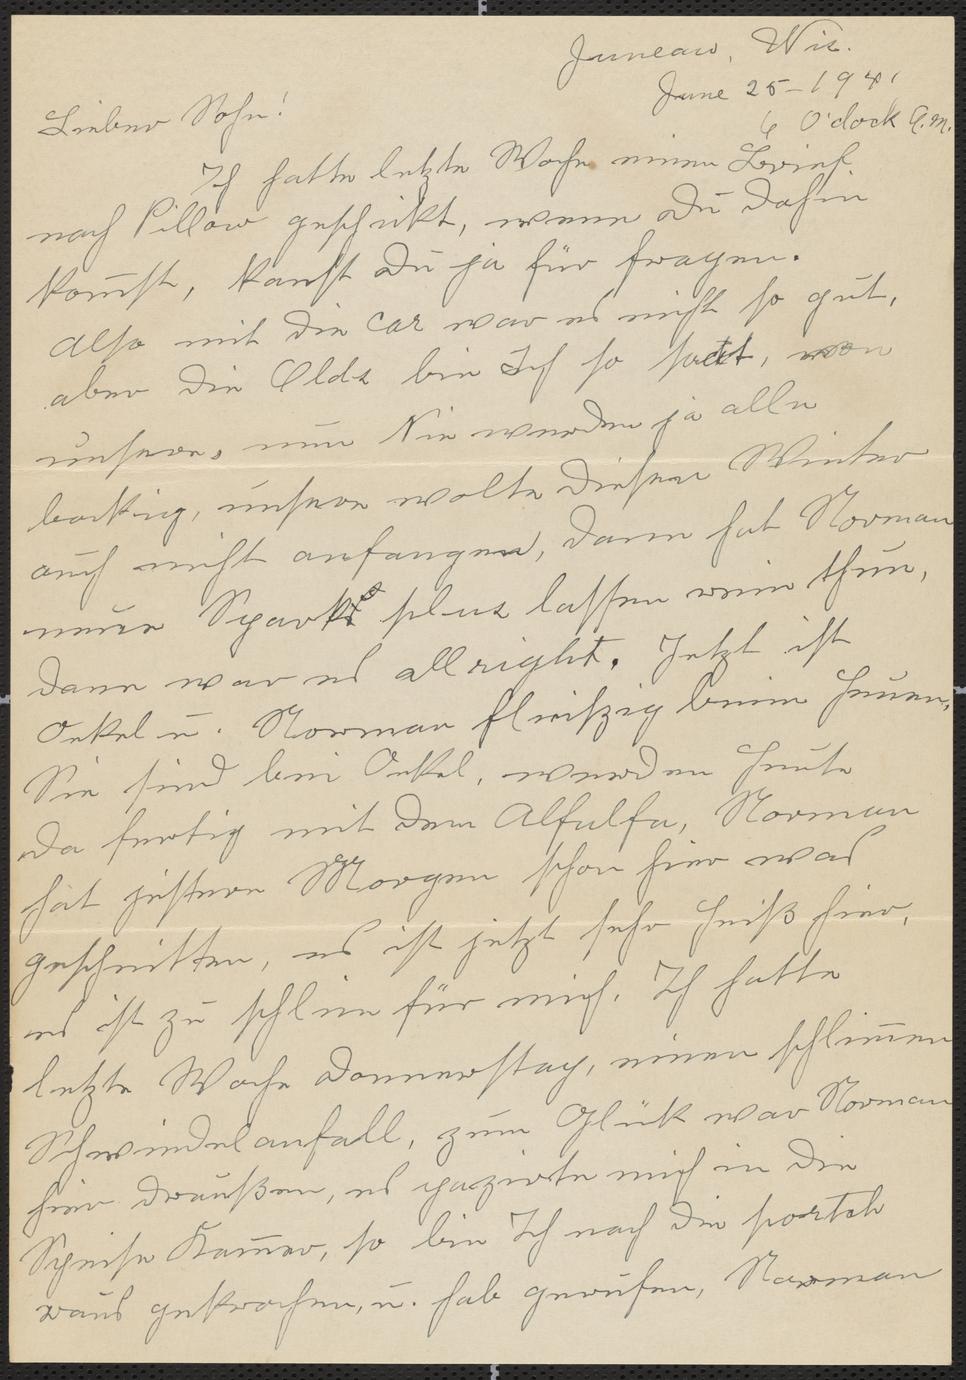 Juneau, Wis.
June 25 - 1941
6 O'clock A.M.
Lieber Sohn!
Ich hatte letzte Woche einen Brief
nach Pillow geschikt, wenn Du dahin
kom̄st, kanst Du ja für fragen.
Also mit die Car war es nicht so gut,
aber die Olds bin Ich so
unsere, nun Nie werden ja alle
bockig, unsere wolte diesen Winter
auch nicht anfangen, dann hat Norman
neue Sparks plus lassen rein thun,
dann war es allright. Jetzt ist
Onkel u. Norman fleiszig beim heuen,
Sie sind bei Onkel, werden heute
da fertig mit dem Alfalfa, Norman
hat gestern Morgen schon hier was
geschnitten, es ist jetzt sehr heiß hier,
es ist zu schlim für mich. Ich hatte
letzte Woche Donnerstag, einen schlim̄en
Schwindelanfall, zum Glük war Norman
hier draußen, es pazirte mich in die
Speise Kam̄er, so bin Ich nach die portch
raus gekrochen, u. hab gerufen, Norman